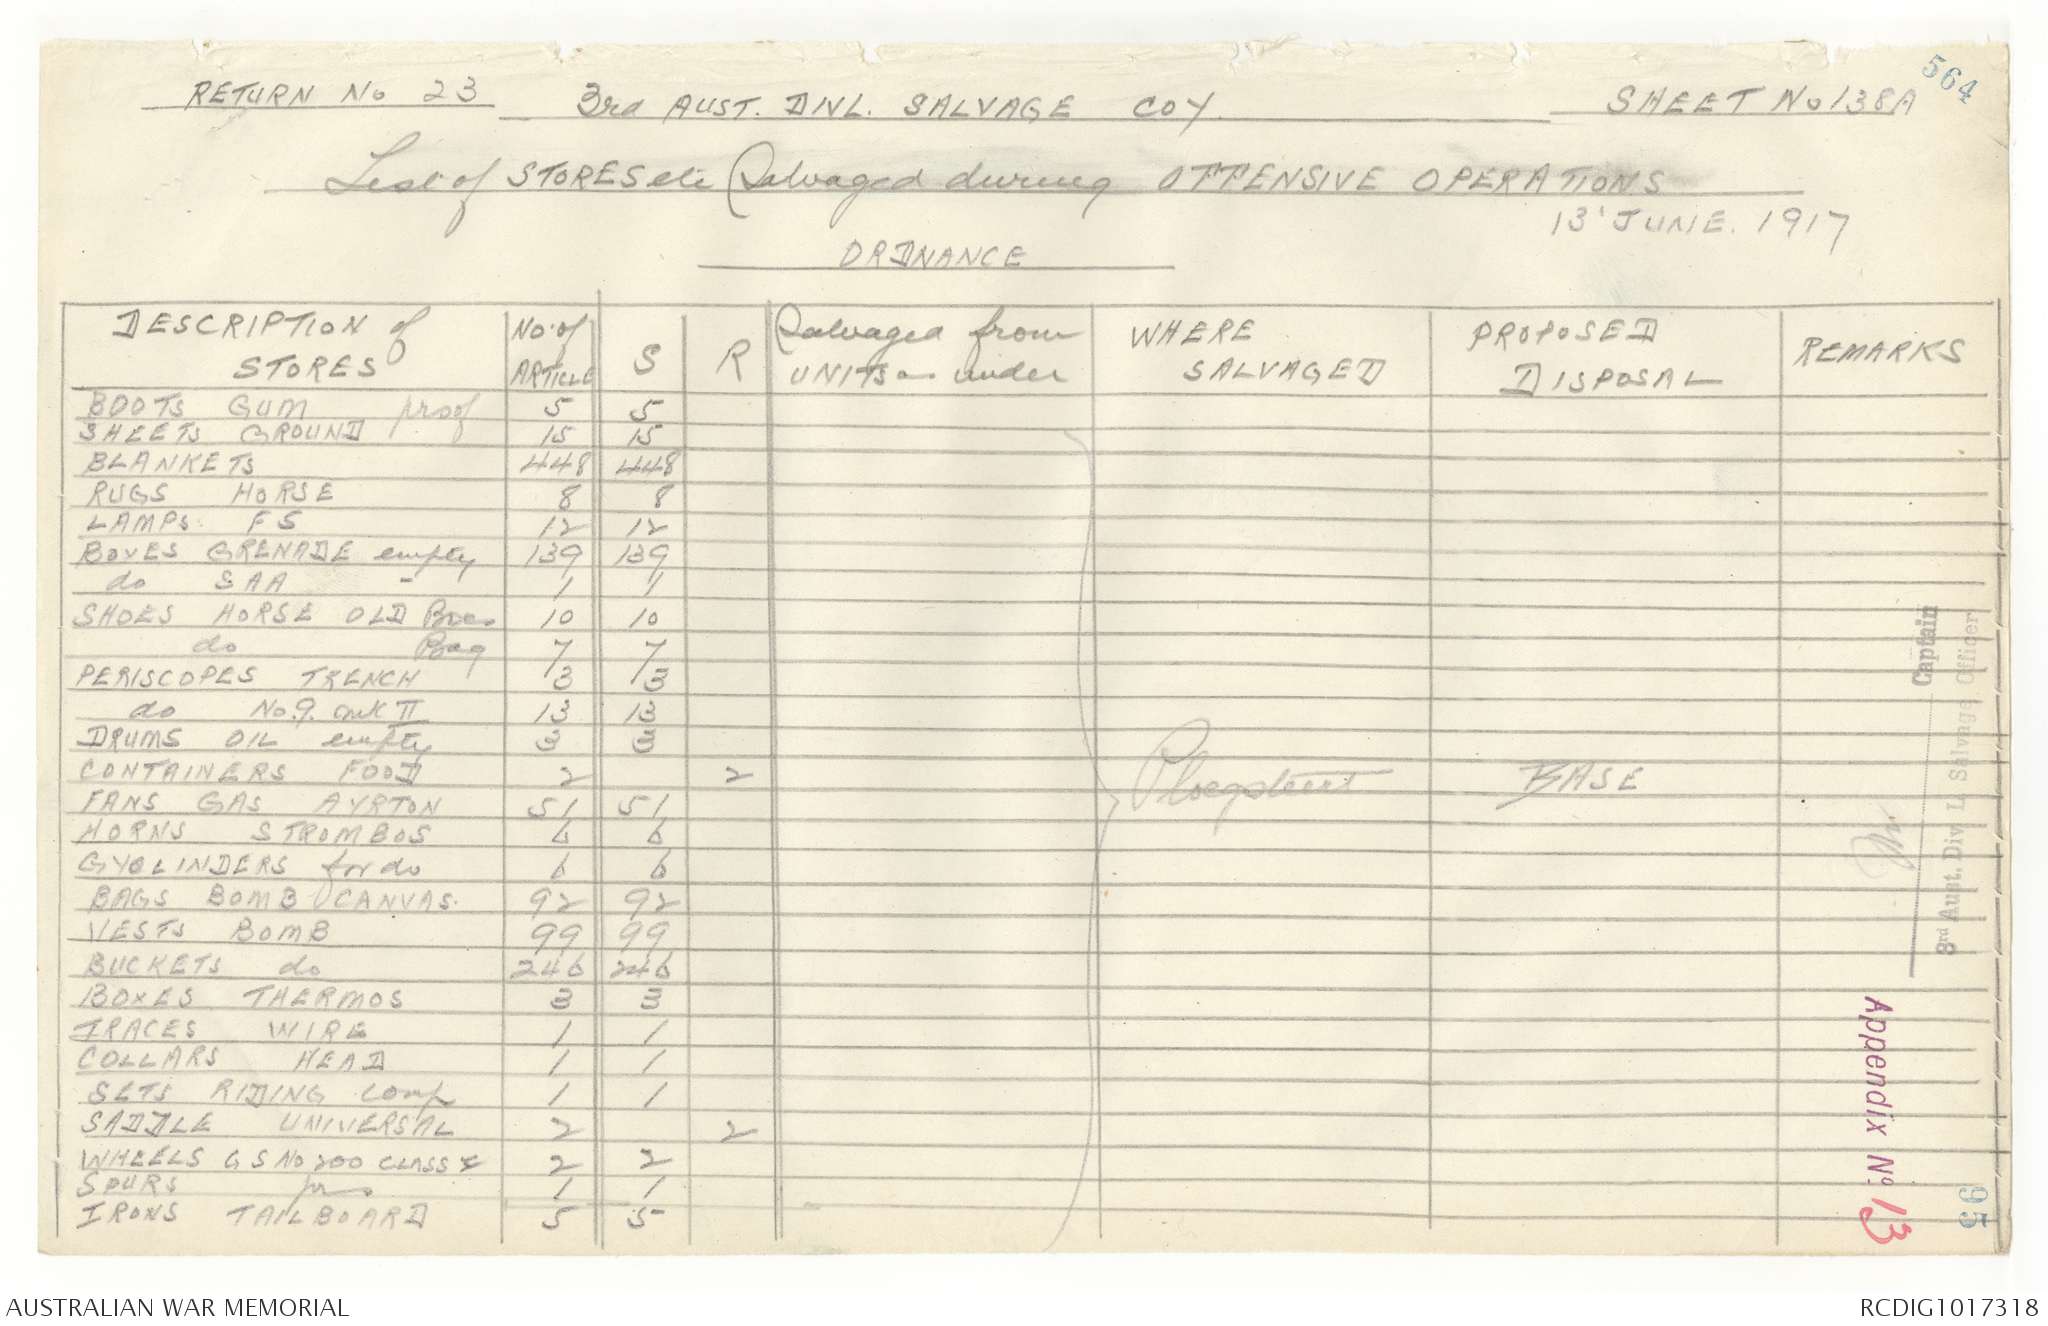 564
RETURN No 23 3rd AUST. DIVL. SALVAGE COY. SHEET No 138A
List of STORES etc Salvaged during OFFENSIVE OPERATIONS
13' JUNE. 1917
ORDNANCE
DESCRIPTION of STORES | No. of ARTICLE | S | R | Salvaged from UNITS as under | WHERE SALVAGED | PROPOSED DISPOSAL | REMARKS
BOOTS GUM prs 5 5
SHEETS GROUND 15 15
BLANKETS 448 448
RUGS HORSE 8 8
LAMPS FS 12 12
BOXES GRENADE empty 139 139
do SAA - 1 1
SHOES HORSE OLD Boxes 10 10
do Bag 7 7
PERISCOPES TRENCH 3 3
do No. 9. mk II 13 13
DRUMS OIL empty 3 3
CONTAINERS FOOD 2 2 Ploegsteert BASE
FANS GAS AYRTON 51 51
HORNS STROMBOS 6 6
CYCLINDERS for do 6 6
BAGS BOMB CANVAS. 92 92
VESTS BOMB 99 99
BUCKETS do 246 246
BOXES THERMOS 3 3
TRACES WIRE 1 1
COLLARS HEAD 1 1
SETS RIDING Comp 1 1
SADDLE UNIVERSAL 2 2
WHEELS G S No 200 CLASS C 2 2
SPURS prs 1 1
IRONS TAILBOARD 5 5
Captain
3rd Aust. Div'l. Salvage Officer
Appendix No 13
95
AUSTRALIAN WAR MEMORIAL
RCDIG1017318